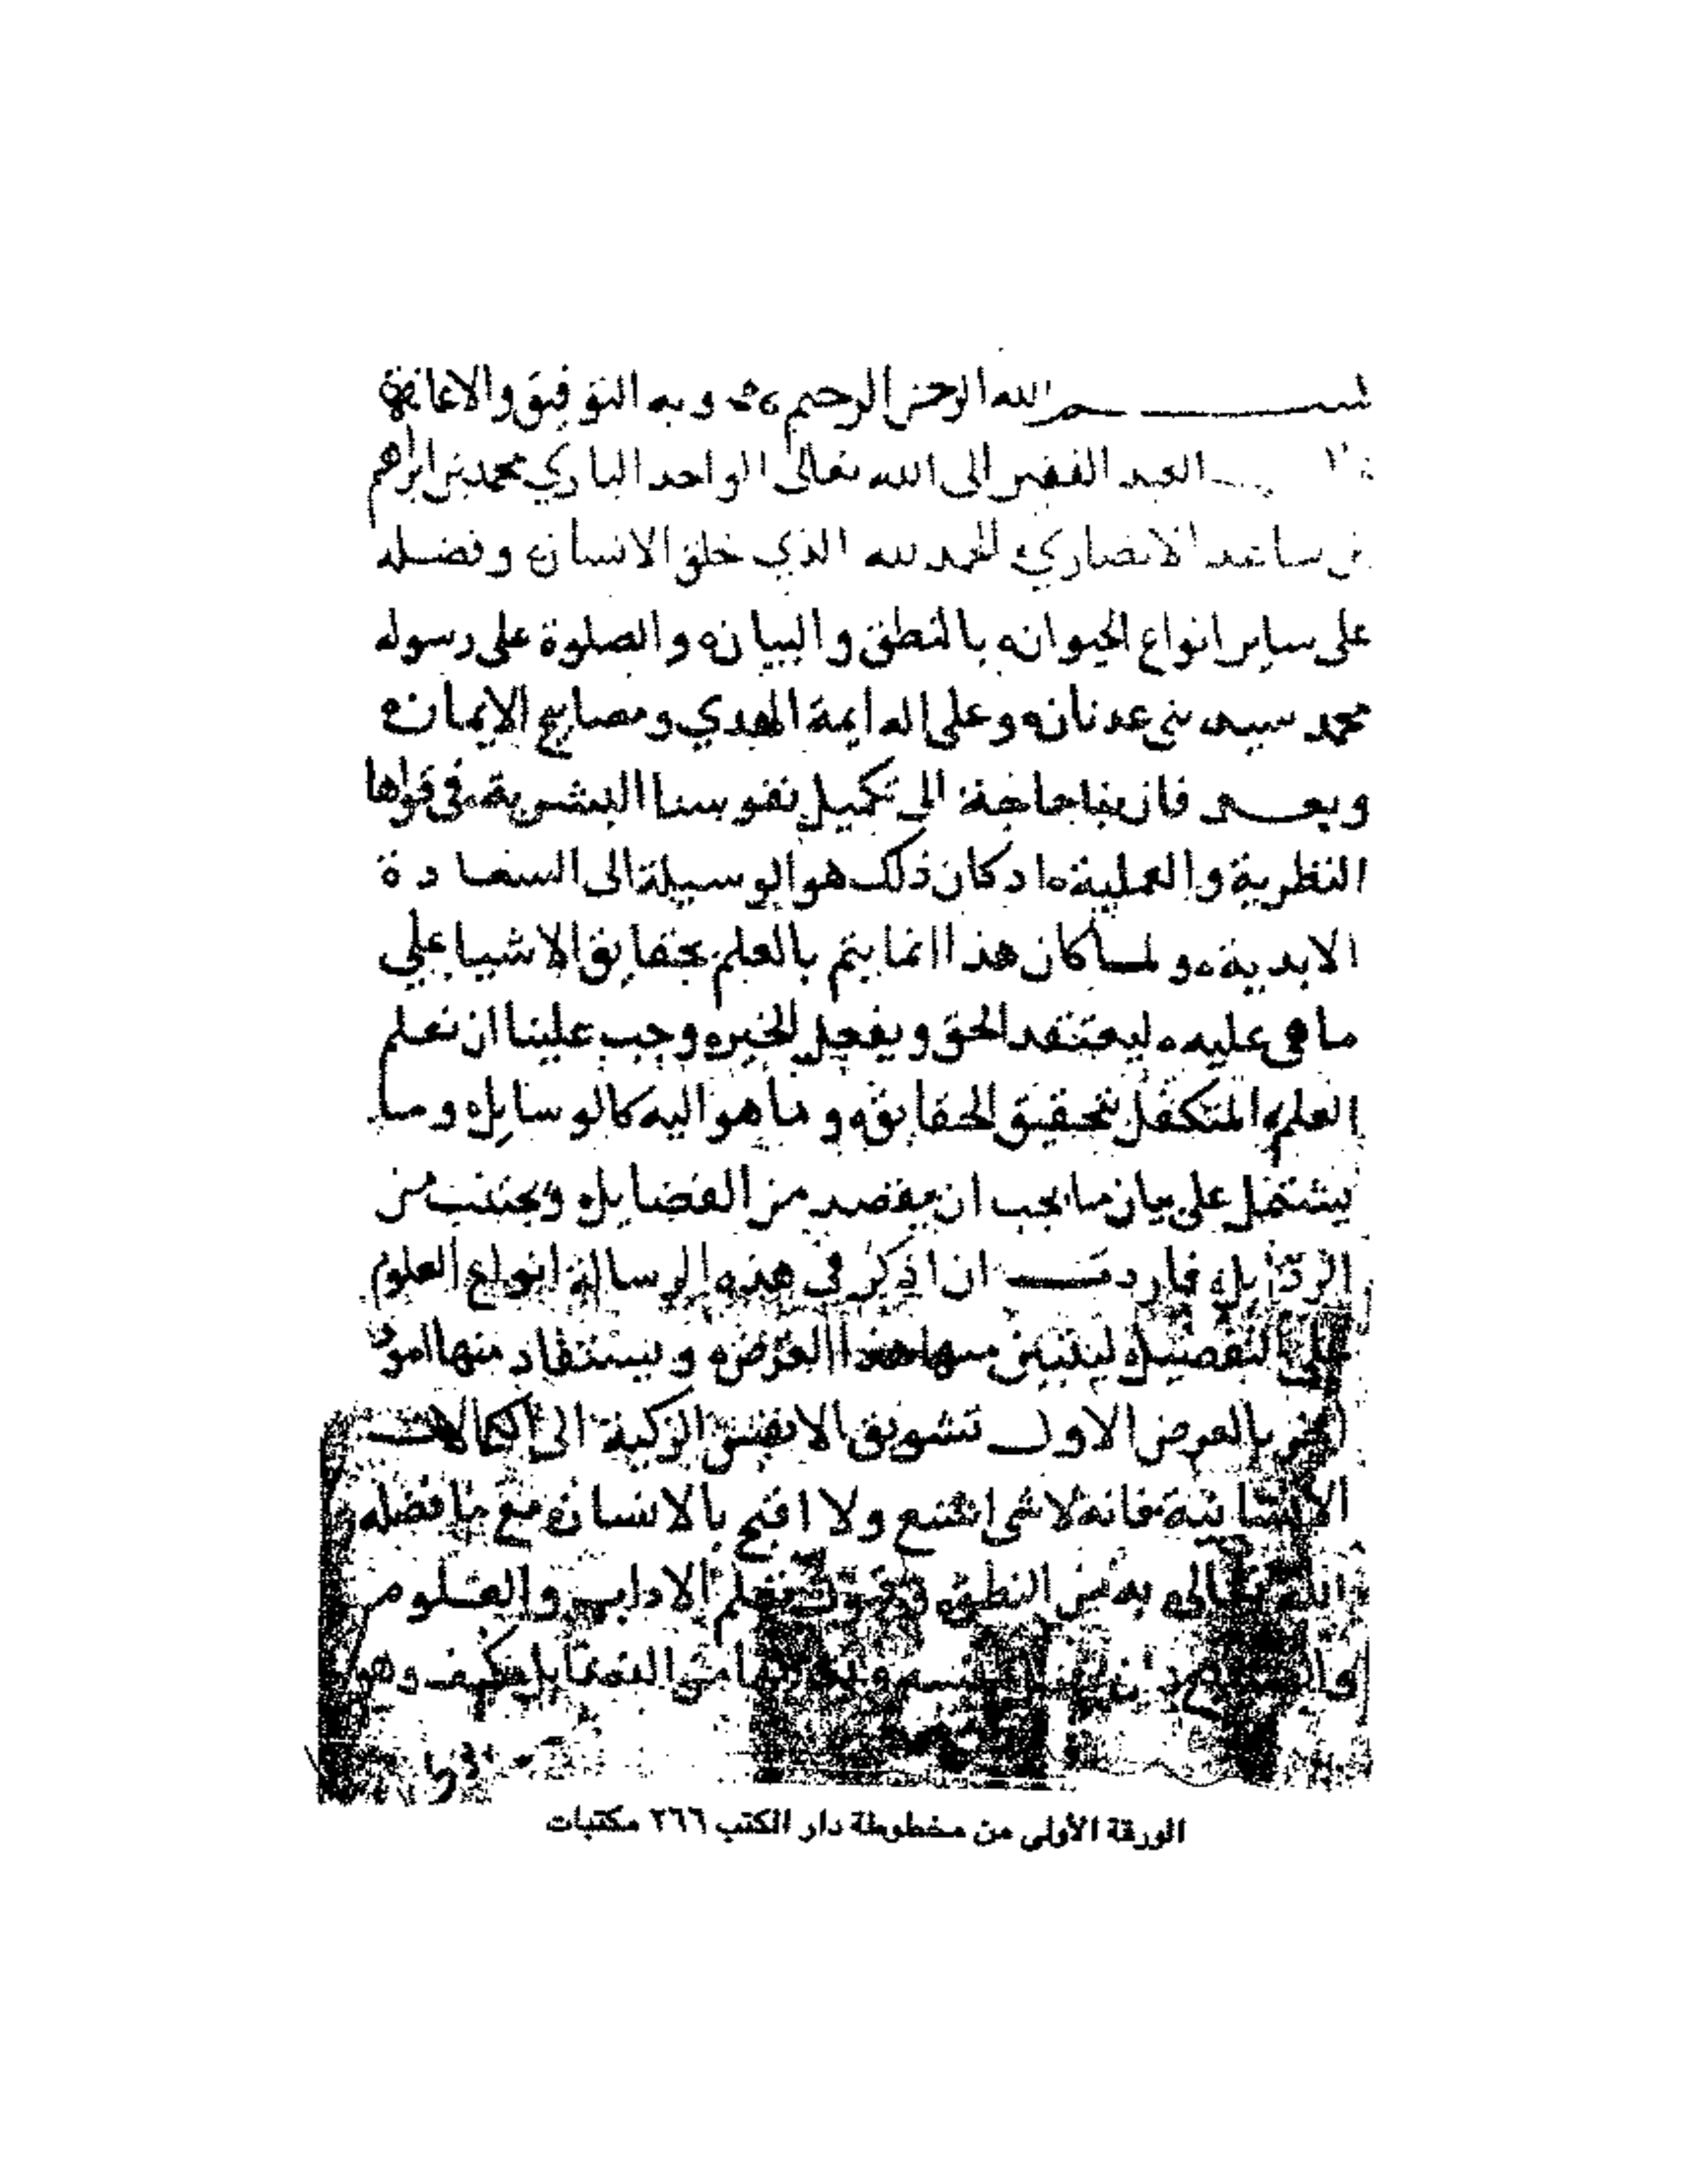 بسم الله الرحمن الرحيم وبه التوفيق والاعانة
العبد الفقير الى الله تعالى الواحد الباري محمد بن ابراهيم
بن ساعد الانصاري الحمد لله الذي خلق الانسان وفضله
على ساير انواع الحيوان بالنطق والبيان والصلوة على رسوله
محمد سيد بني عدنان وعلى اله ايمة الهدي ومصابيح الايمان
وبعد فان بنا حاجة الى تكميل نفوسنا البشرية في قواها
النظرية والعملية اد كان ذلك هو الوسيلة الى السعادة
الابدية ولما كان هذا انما يتم بالعلم بحقايق الاشيا على
ما هي عليه ليعتقد الحق ويفعل الخير وجب علينا ان نعلم
العلم المتكفل بتحقيق الحقايق وما هو اليه كالوسايل وما
يشتمل على بيان ما يجب ان يقصد من الفضايل ويجتنب من
الرذايل فاردت ان اذكر في هذه الرسالة انواع العلوم
على التفصيل ليتبين منها هذا الغرض ويستفاد منها امور
اخر بالعرض الاول تشويق الانفس الزكية الى الكمالات
الانسانية فانه لا شي اشنع ولا اقبح بالانسان مع ما فضله
الله تعالى به من النطق وقبول تعلم الاداب والعلوم
من الفضايل كيف وهو
الورقة الأولى من مخطوطة دار الكتب ٢٦٦ مكتبات